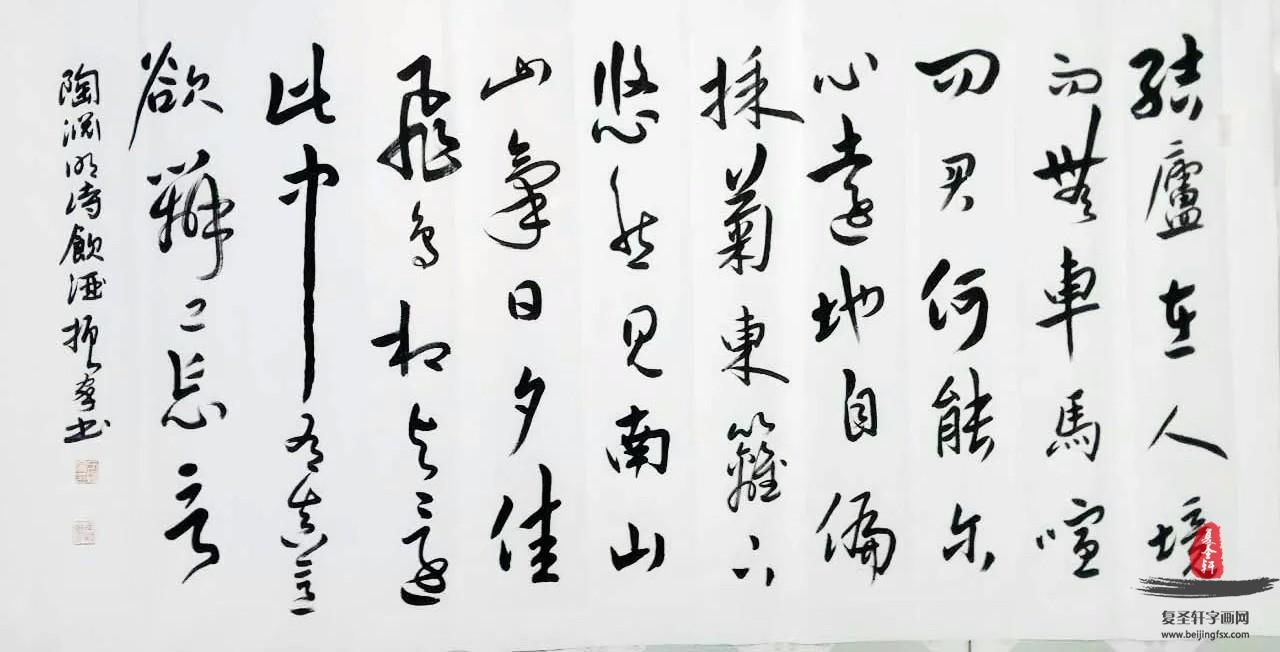 結廬在人境
而無車馬喧
问君何能尔
心遠地自偏
採菊東籬下
悠然見南山
山氣日夕佳
飛鳥相与還
此中有真意
欲辨已忘言
陶渊明诗飲酒振书
复圣轩
复圣轩字画网
www.beijingfsx.com